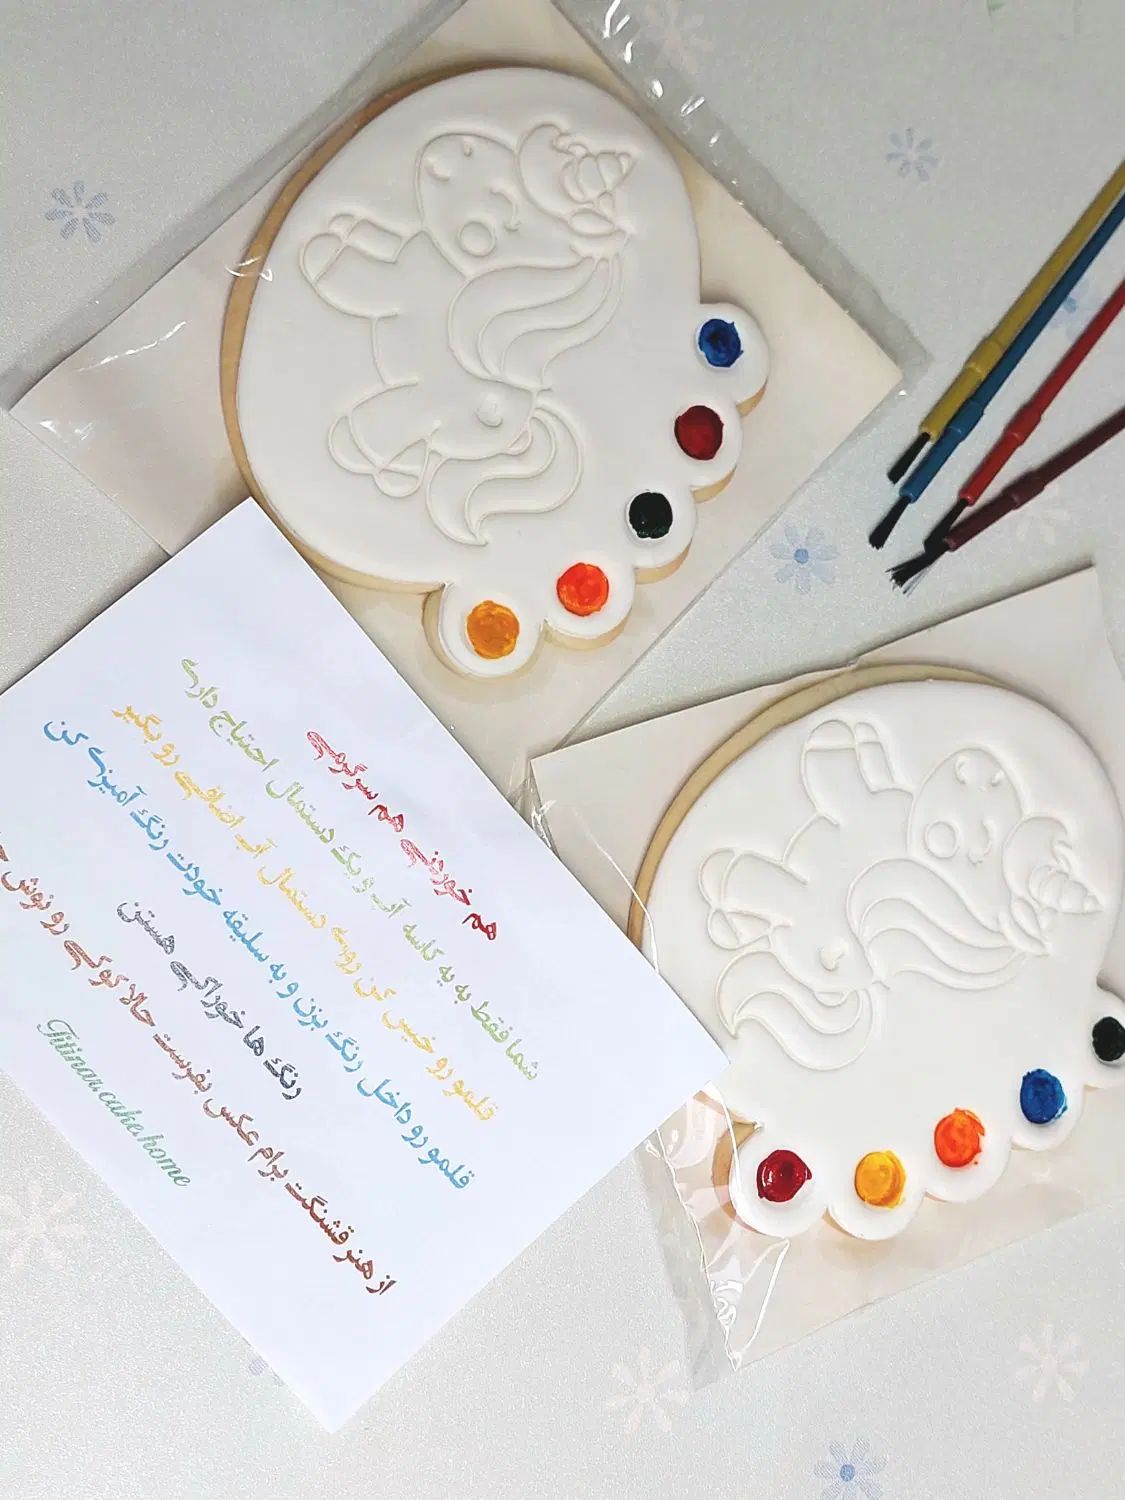 هم خوردنی هم سرگرمی
شما فقط به یه کاسه آب و یک دستمال احتیاج داری
قلمو رو خیس کن روی دستمال آب اضافی رو بگیر
قلمو رو داخل رنگ بزن و به سلیقه خودت رنگ آمیزی کن
رنگ ها خوراکی هستن
از هنر قشنگت برام عکس بفرست حالا کوکی رو نوش
Titinaz.cake.home